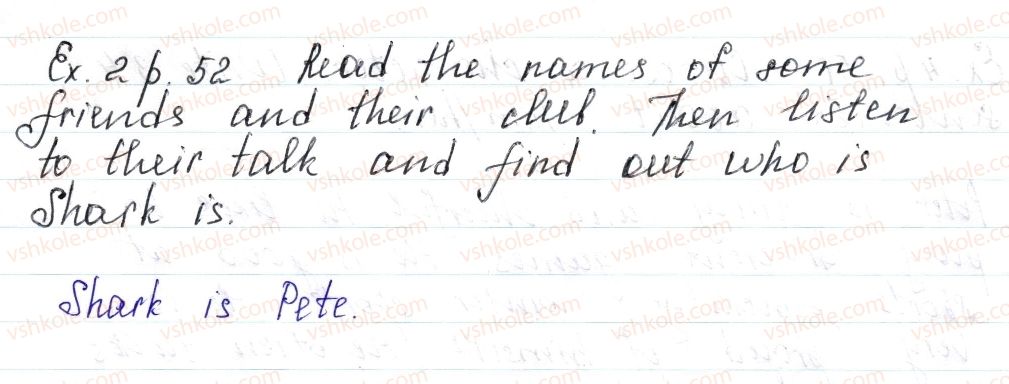 Ex. 2 p. 52 Read the names of some
friends and their club. Then listen
to their talk and find out who is
Shark is.
Shark is Pete.